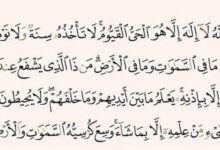 لَآ إِلَٰهَ إِلَّا هُوَ الْحَيُّ الْقَيُّومُ لَا تَأْخُذُهُ سِنَةٌ وَلَا نَوْمٌ
مَا فِى السَّمَٰوَٰتِ وَمَا فِى الْأَرْضِ مَن ذَا الَّذِى يَشْفَعُ عِندَ
إِلَّا بِإِذْنِهِ يَعْلَمُ مَا بَيْنَ أَيْدِيهِمْ وَمَا خَلْفَهُمْ وَلَا يُحِيطُونَ
مِّنْ عِلْمِهِ إِلَّا بِمَا شَآءَ وَسِعَ كُرْسِيُّهُ السَّمَٰوَٰتِ وَالْأَرْضَ